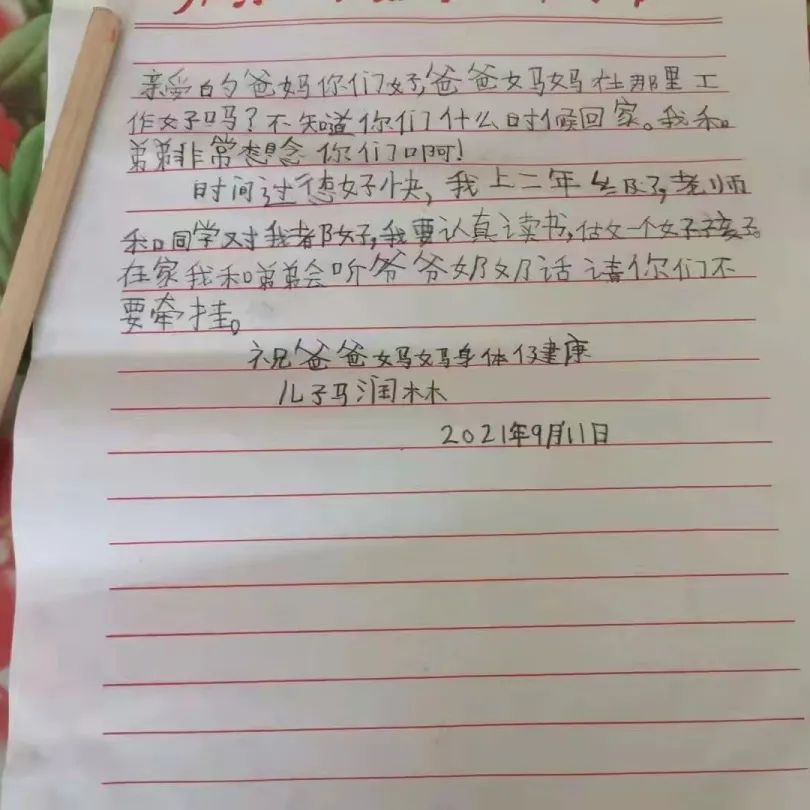 亲爱的爸妈你们好爸爸妈妈在那里工
作好吗？不知道你们什么时候回家。我和
弟弟非常想念你们啊！
时间过德好快，我上二年级了，老师
和同学对我都好，我要认真读书，做一个好孩子。
在家我和弟弟会听爷爷奶奶话请你们不
要牵挂。
祝爸爸妈妈身体健康
儿子马润林
2021年9月11日